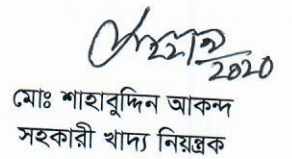 2020
মোঃ শাহাবুদ্দিন আকন্দ
সহকারী খাদ্য নিয়ন্ত্রক